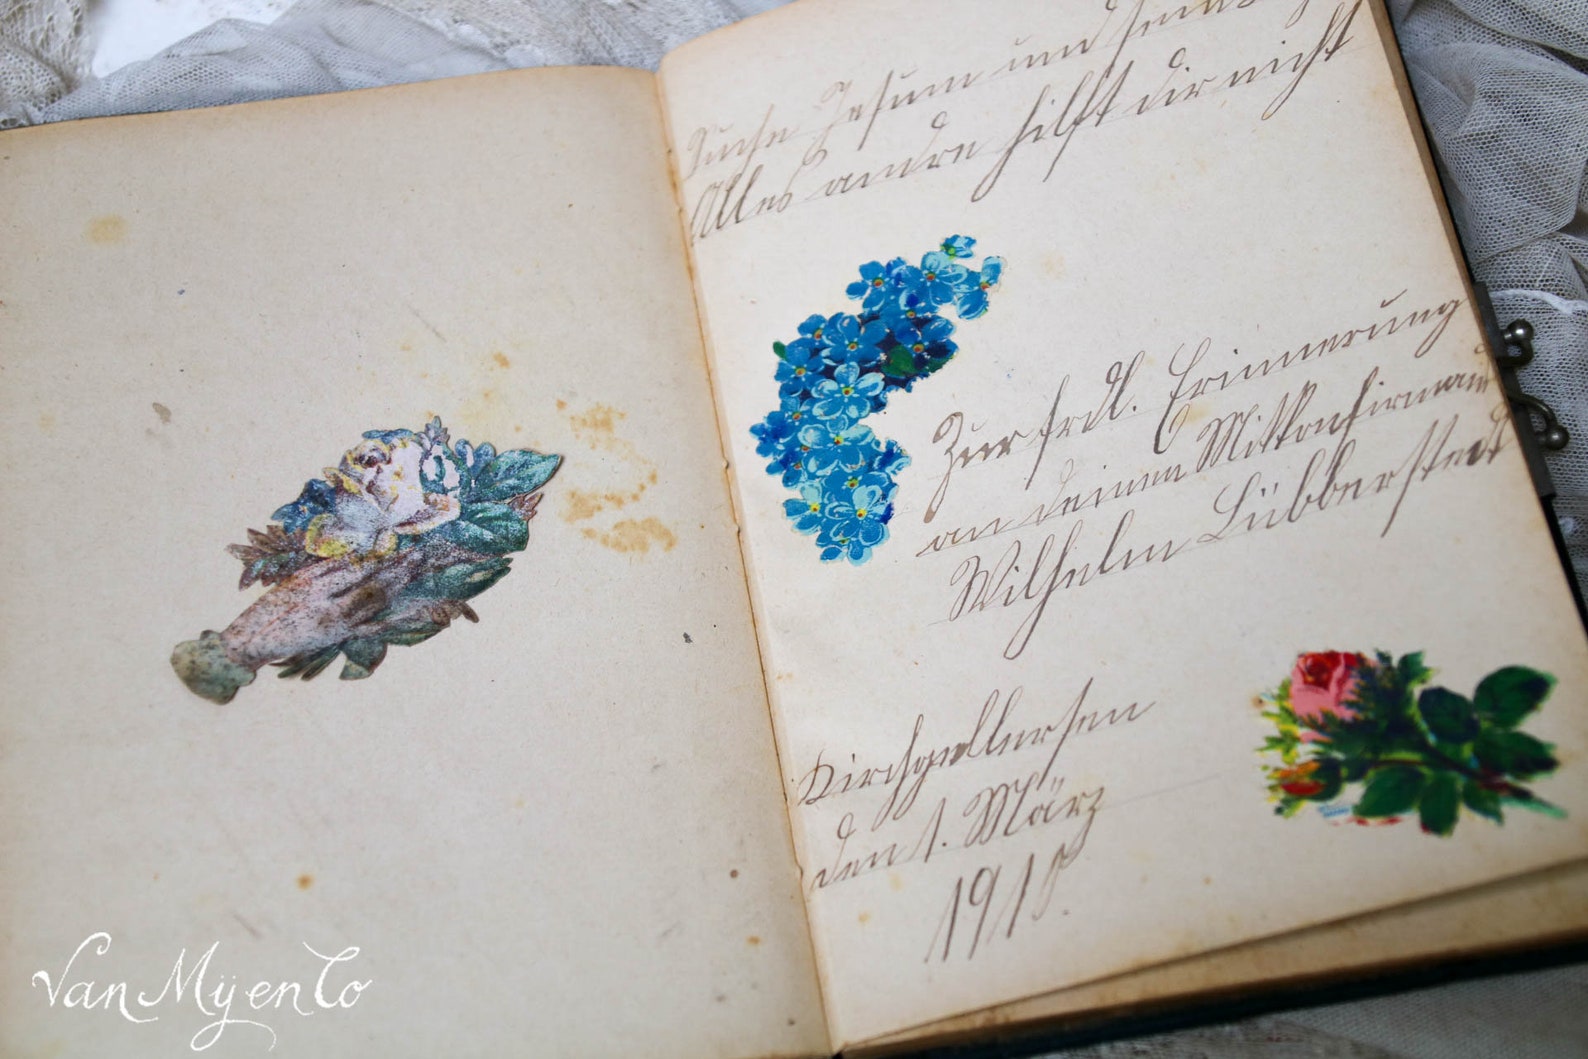 Suche Jesum und sein
Alles andre hilft dir nicht
Zur frdl. Erinnerung
an deinen Mitkonfirmand
Wilhelm Lübberstedt
Kirchgellersen
den 1. März
1910.
VanMijenCo